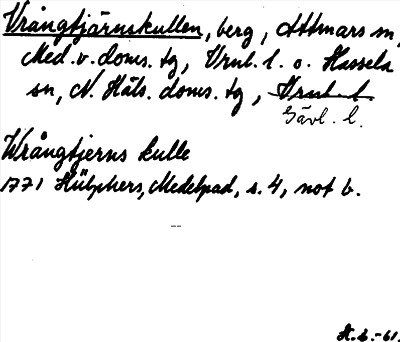 Vrångtjärnskullen, berg, Attmars sn,
Med. v. doms. tg, Vrnl. l. o. Hassela
sn, N. Häls. doms. tg, Vrnl. l.
Gävl. l.
Wrångtjerns kulle
1771 Hülphers, Medelpad, s. 4, not b.
--
H. L. -61.